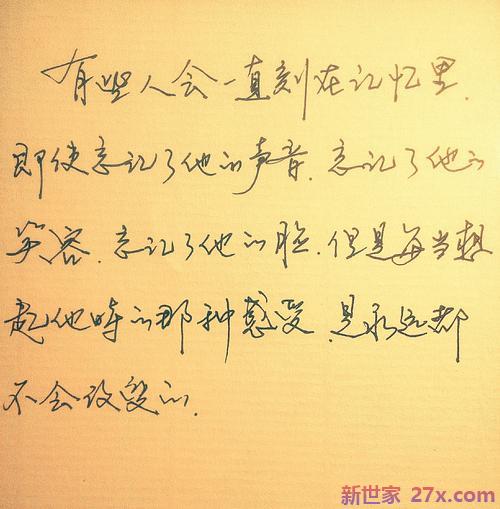 有些人会一直刻在记忆里.
即使忘记了他的声音.忘记了他的
笑容.忘记了他的脸.但是每当想
起他时的那种感受.是永远都
不会改变的.
新世家 27x.com